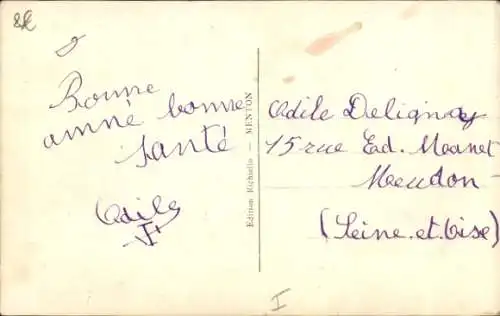 Bonne
anné bonne
santé
Odile
Edition Richiello - MENTON
Odile Delignay
15 rue Ed. Manet
Meudon -
(Seine.et.Oise)
I